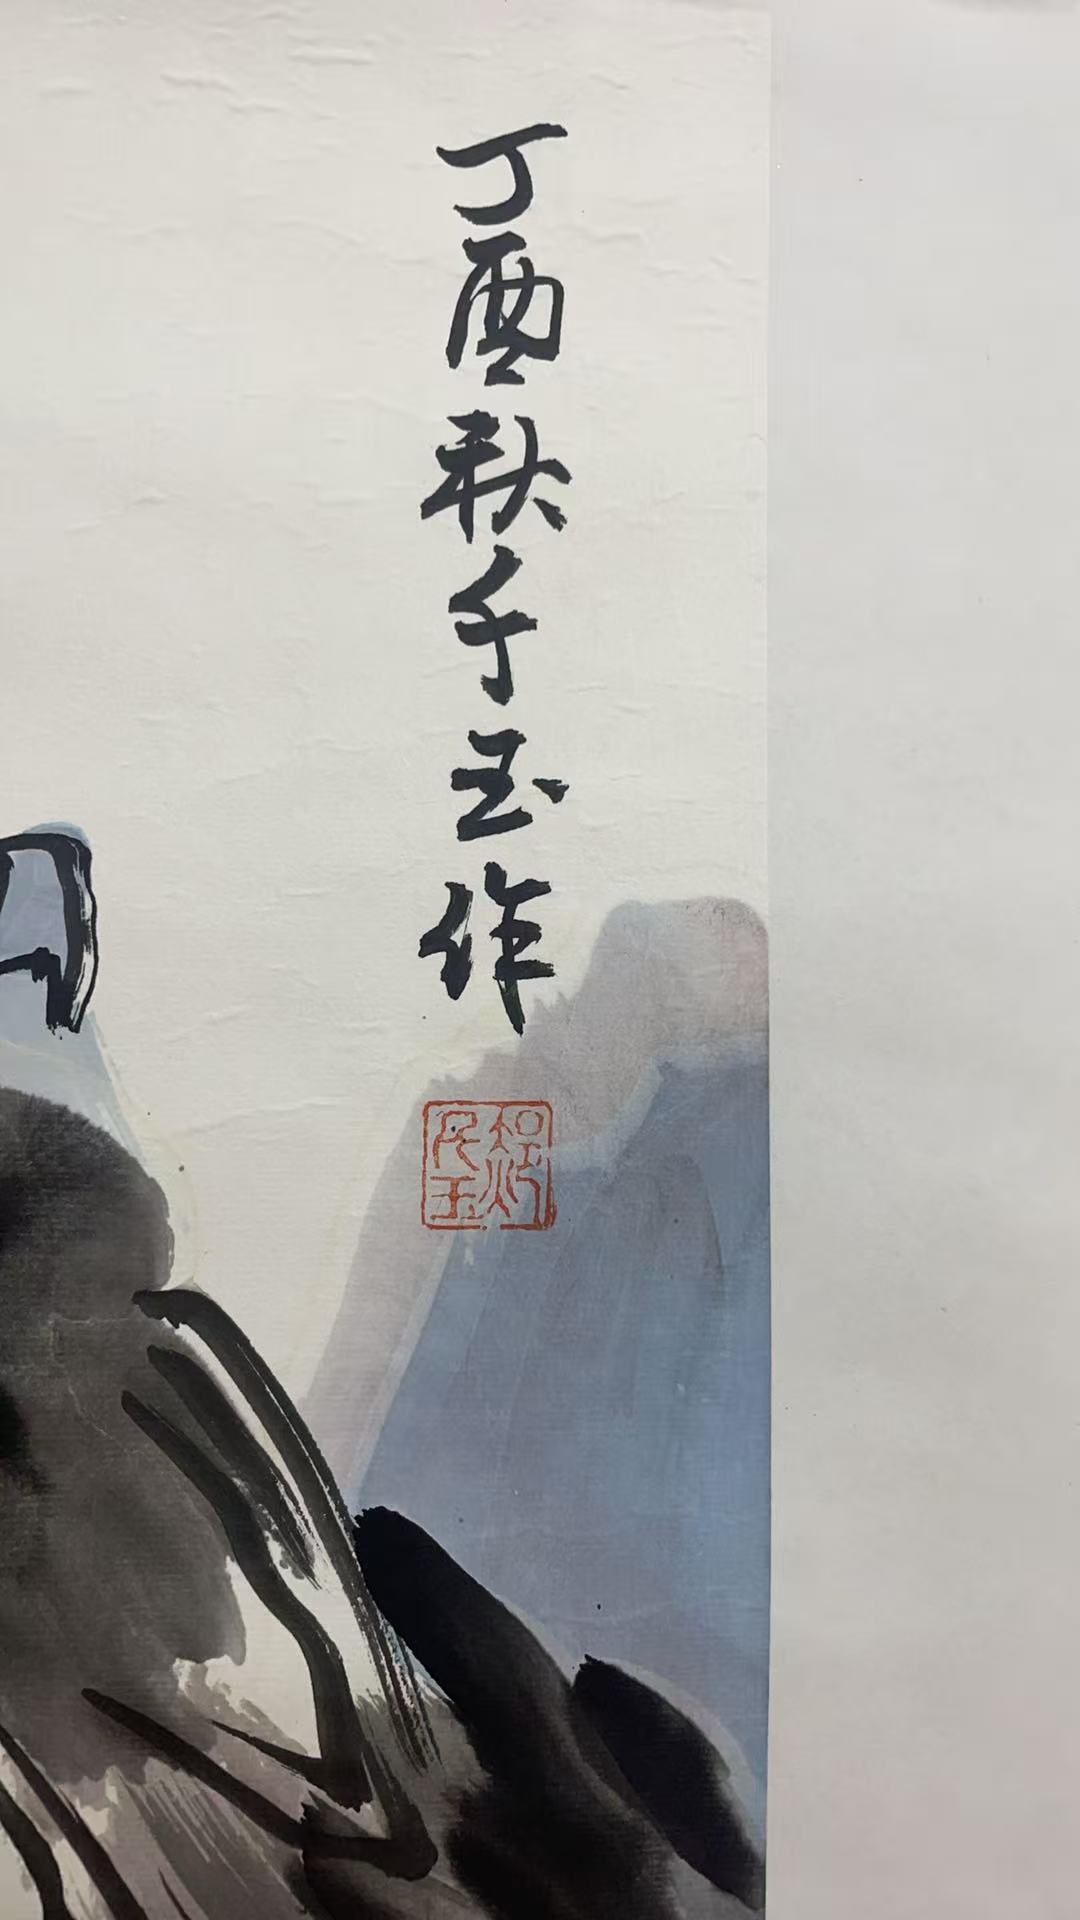 丁酉秋千玉作